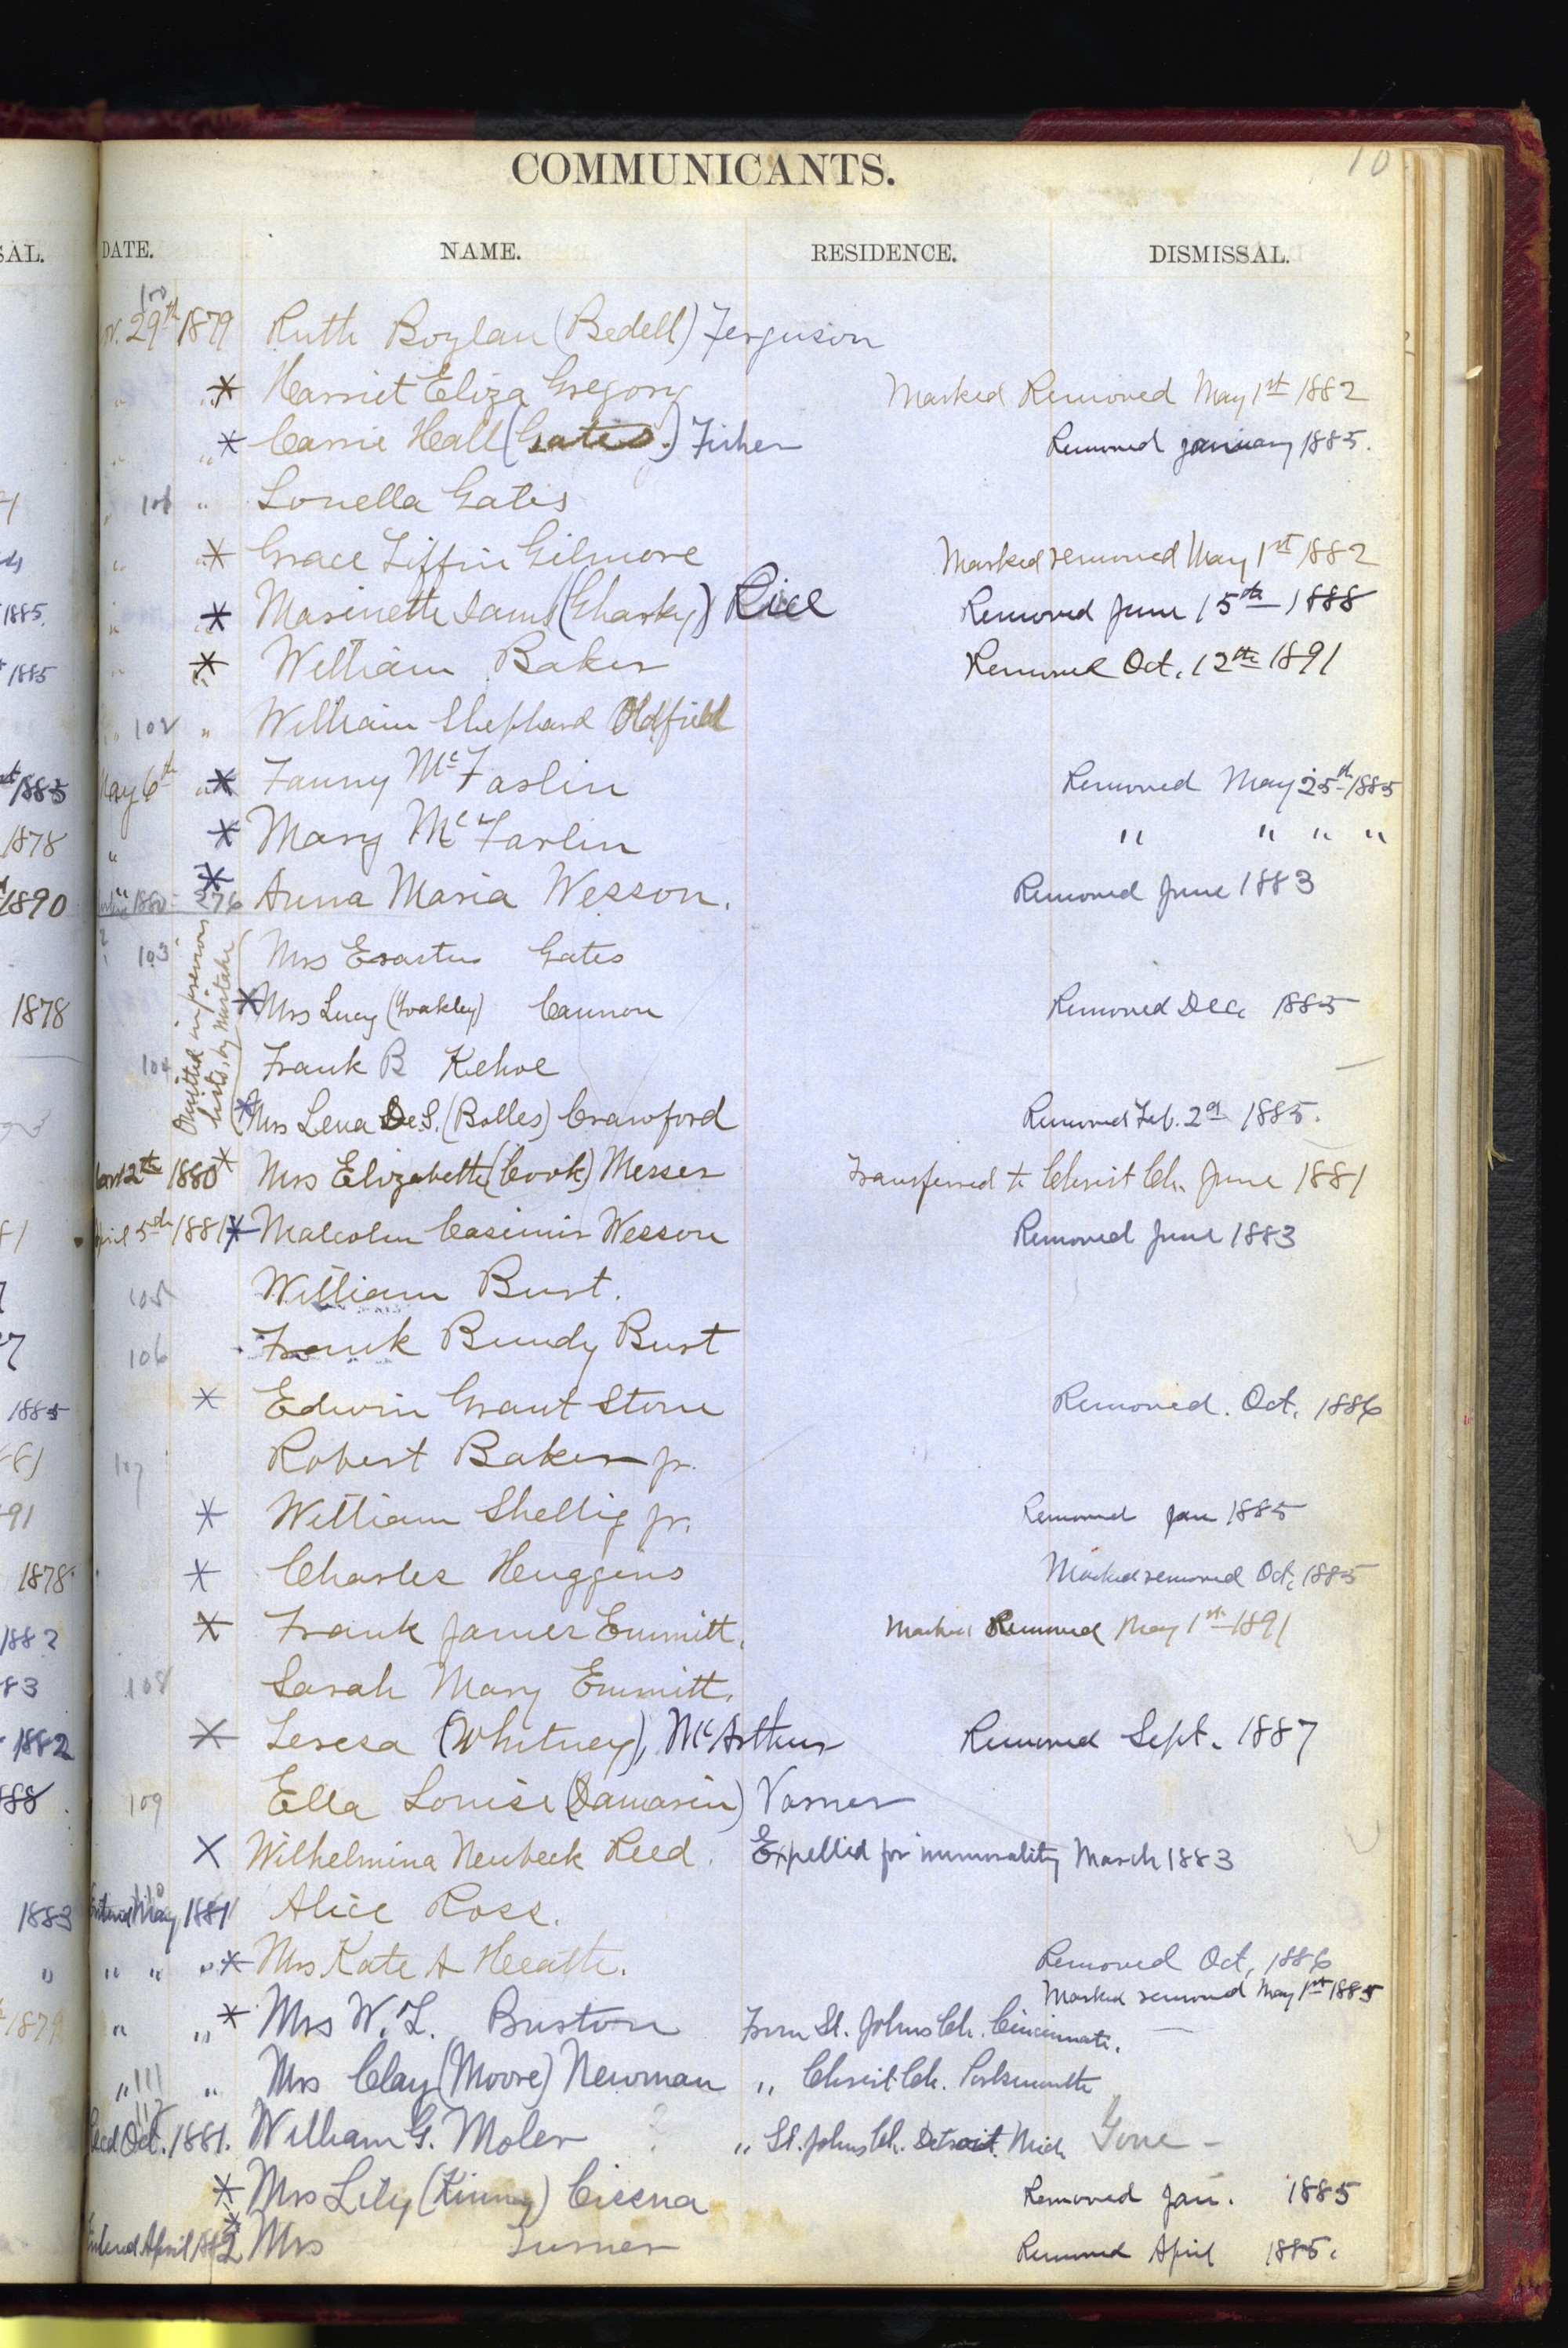 COMMUNICANTS.
10
SAL. DATE. NAME. RESIDENCE. DISMISSAL.
100
29th 1879 Ruth Boylan (Bedell) Ferguson
" " * Harriet Eliza Gregory Marked Removed May 1st 1882
" " * Carrie Hall (Gates.) Fisher Removed January 1885.
" 101 " Louella Gates
" " * Grace Tiffin Gilmore Marked removed May 1st 1882
1885. " " * Marinette (Gharky) Rice Removed June 15th 1888
1885 " " * William Baker Removed Oct. 12th 1891
" 102 " William Shephard Oldfield
1885 May 6th " * Fanny McFarlin Removed May 25th 1885
1878 " * Mary McFarlin " " " "
1890 1880 276 * Anna Maria Wesson. Removed June 1883
Omitted in previous lists, by mistake
103 Mrs Erastus Gates
1878 * Mrs Lucy (Yoakley) Cannon Removed Dec. 1885
104 Frank B Kehoe
* Mrs Lena De.S. (Bolles) Crawford Removed Feb. 2d 1885.
1880 * Mrs Elizabeth (Cook) Messer Transferred to Christ Ch. June 1881
April 5th 1881 * Malcolm Casimir Wesson Removed June 1883
105 William Burt.
106 Frank Bundy Burt
1885 * Edwin Grant Stone Removed. Oct. 1886
107 Robert Baker jr.
91 * William Shellig jr. Removed Jan 1885
1878 * Charles Huggins Marked removed Oct. 1885
1882 * Frank James Emmitt. Marked Removed May 1st 1891
83 108 Sarah Mary Emmitt.
1882 * Teresa (Whitney), McArthur Removed Sept. 1887
888. 109 Ella Louise (Damarin) Varner
X Wilhelmina Neubeck Reed. Expelled for immorality March 1883
110
1883 Entered May 1881 Alice Ross.
" " " " * Mrs Kate A Heath. Removed Oct, 1886
Marked removed May 1st 1885
1879 " " * Mrs W. L. Burton From St. Johns Ch. Cincinnati.
" 111 " Mrs Clay (Moore) Newman " Christ Ch. Portsmouth
112
Oct. 1881. William G. Moler ? " St. Johns Ch. Detroit. Mich Gone -
* Mrs Lily (Kinney) Cissna Removed Jan. 1885
Entered April 1882 * Mrs Turner Removed April 1885.